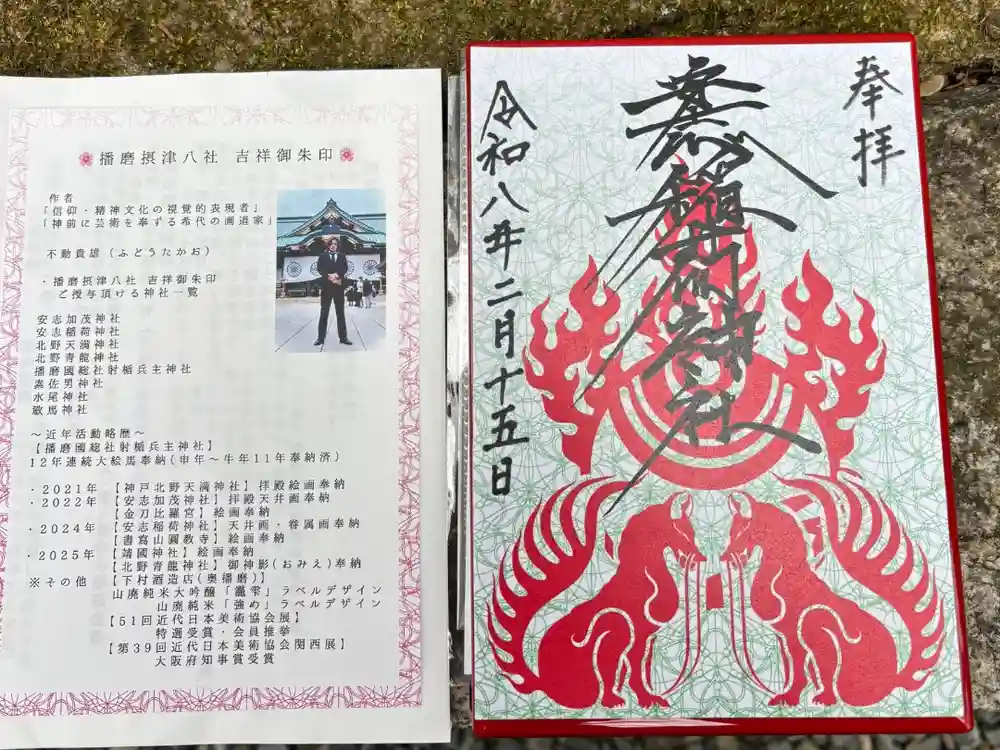 播磨摂津八社 吉祥御朱印
作者
「信仰・精神文化の視覚的表現者」
「神前に芸術を奉ずる希代の画道家」
不動貴雄(ふどうたかお)
・播磨摂津八社 吉祥御朱印
ご授与頂ける神社一覧
安志加茂神社
安志稲荷神社
北野天満神社
北野青龍神社
播磨國総社射楯兵主神社
素佐男神社
水尾神社
敏馬神社
~近年活動略歴~
【播磨國総社射楯兵主神社】
12年連続大絵馬奉納(申年~牛年11年奉納済)
・2021年 【神戸北野天満神社】拝殿絵画奉納
・2022年 【安志加茂神社】拝殿天井画奉納
【金刀比羅宮】絵画奉納
・2024年 【安志稲荷神社】天井画・眷属画奉納
【書寫山圓教寺】絵画奉納
・2025年 【靖國神社】絵画奉納
【北野青龍神社】御神影(おみえ)奉納
※その他 【下村酒造店(奥播磨)】
山廃純米大吟醸「龗雫」ラベルデザイン
山廃純米「強め」ラベルデザイン
【51回近代日本美術協会展】
特選受賞・会員推挙
【第39回近代日本美術協会関西展】
大阪府知事賞受賞
奉拝
令和八年二月十五日